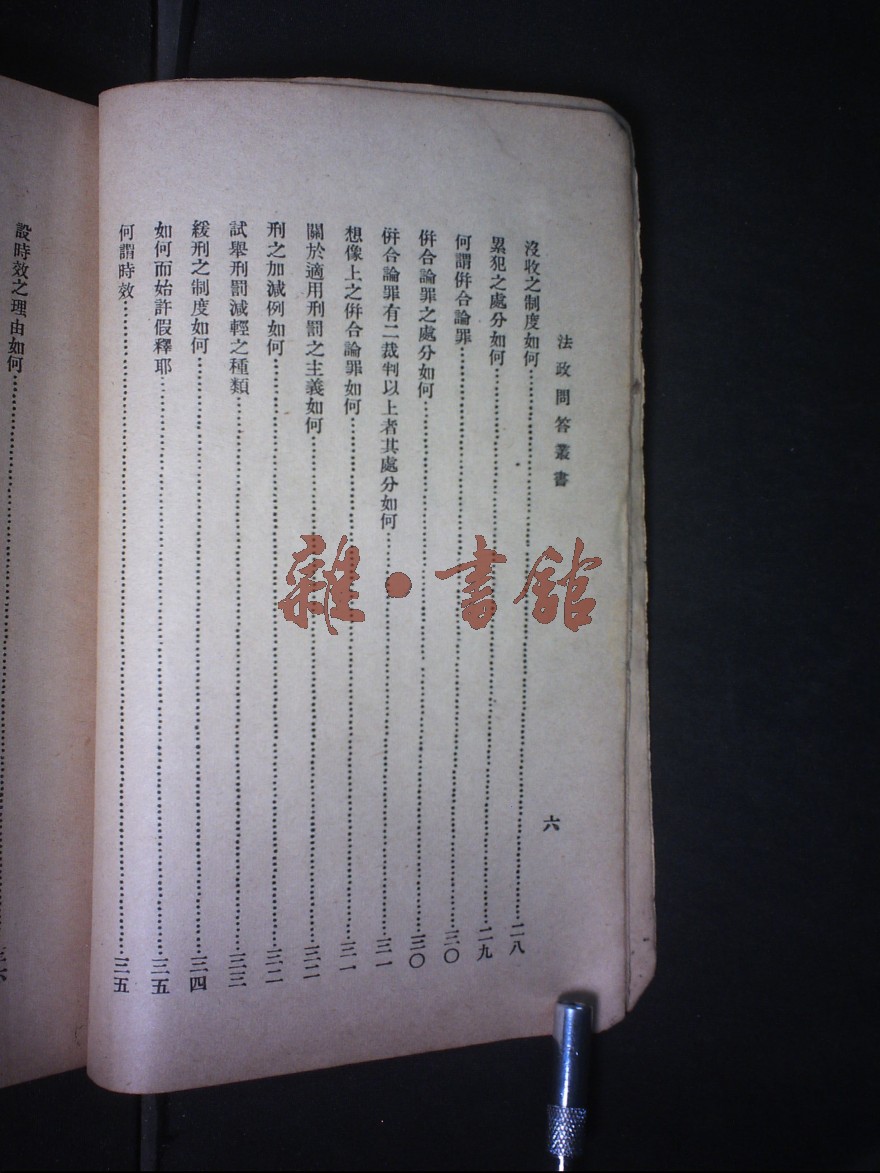 法政問答叢書
六
沒收之制度如何……二八
累犯之處分如何……二九
何謂倂合論罪……三〇
倂合論罪之處分如何……三〇
倂合論罪有二裁判以上者其處分如何……三一
想像上之倂合論罪如何……三一
關於適用刑罰之主義如何……三二
刑之加減例如何……三二
試舉刑罰減輕之種類……三三
緩刑之制度如何……三四
如何而始許假釋耶……三五
何謂時效……三五
設時效之理由如何……三六
雜·書館